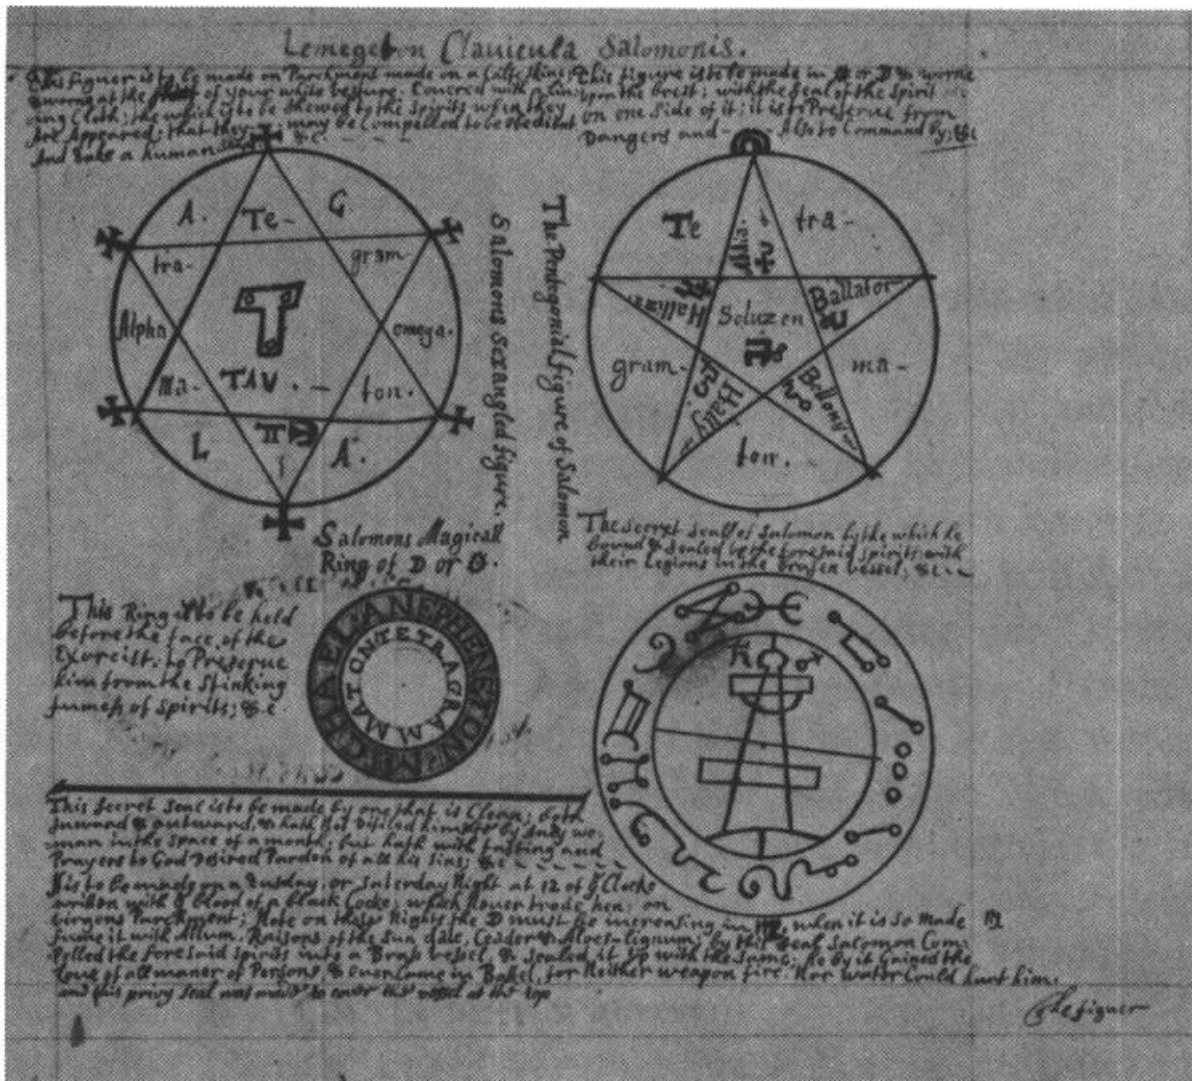 Lemegeton Clavicula Salomonis.
This figuer is to be made on Parchment made on a Calfs skin;
& worne at the of your white vesture. Covered with a Lin:
ing Cloth; the which is to be shewed to the spirits when they
Are Appeared; that they may be Compelled to be obedient
And take a humane &c.
This figure is to be made in or worne
upon the brest; with the seal of the spirit
on one side of it; it is to Preserve from
Dangers and — Also to Command by; &c
A. Te- G
tra- gram-
T
Alpha omega.
ma- TAV. — ton.
L A.
Salomons Sexangled figure.
The Pentegonial figure of Salomon
Te tra-
Abdia
Hallizy Soluzen Ballator
gram- ma-
Hauy Bellony
ton.
Salomons Magicall
Ring of D or
This Ring is to be held
before the face of the
Exorcist. to Preserve
him from the stinking
fumes of spirits; &.c
ANEPHENETON MICHAEL
TETRAGRAMMATON
The secret seal of Salomon by the which he
bound & sealed up the foresaid spirits with
their Legions in the brasen vessel; &c
This secret seal is to be made by one that is Clean; both
Inward & outward, & hath Not defiled himself by Any wo:
man in the space of a month; but hath with fasting and
Prayers to God Desired Pardon of all his sins; &c
It is to be made on a Tusday, or Saterday Night at 12 of Clocke
writen with blood of a black Cocke; which Never trode hen; on
virgens Parchment; Note on these Nights the D must be increasing in when it is so made
fume it with Allum, Raisons of the Sun date, Ceader & Aloes; by this seal Salomon Com:
pelled the foresaid spirits into a Brass vessel, & sealed it up with the same; he by it Gained the
Love of all maner of Persons, & overcame in Battel, for Neither weapon fire. Nor water Could hurt him.
and this privy seal was made to cover the vessel at the top
The figuer